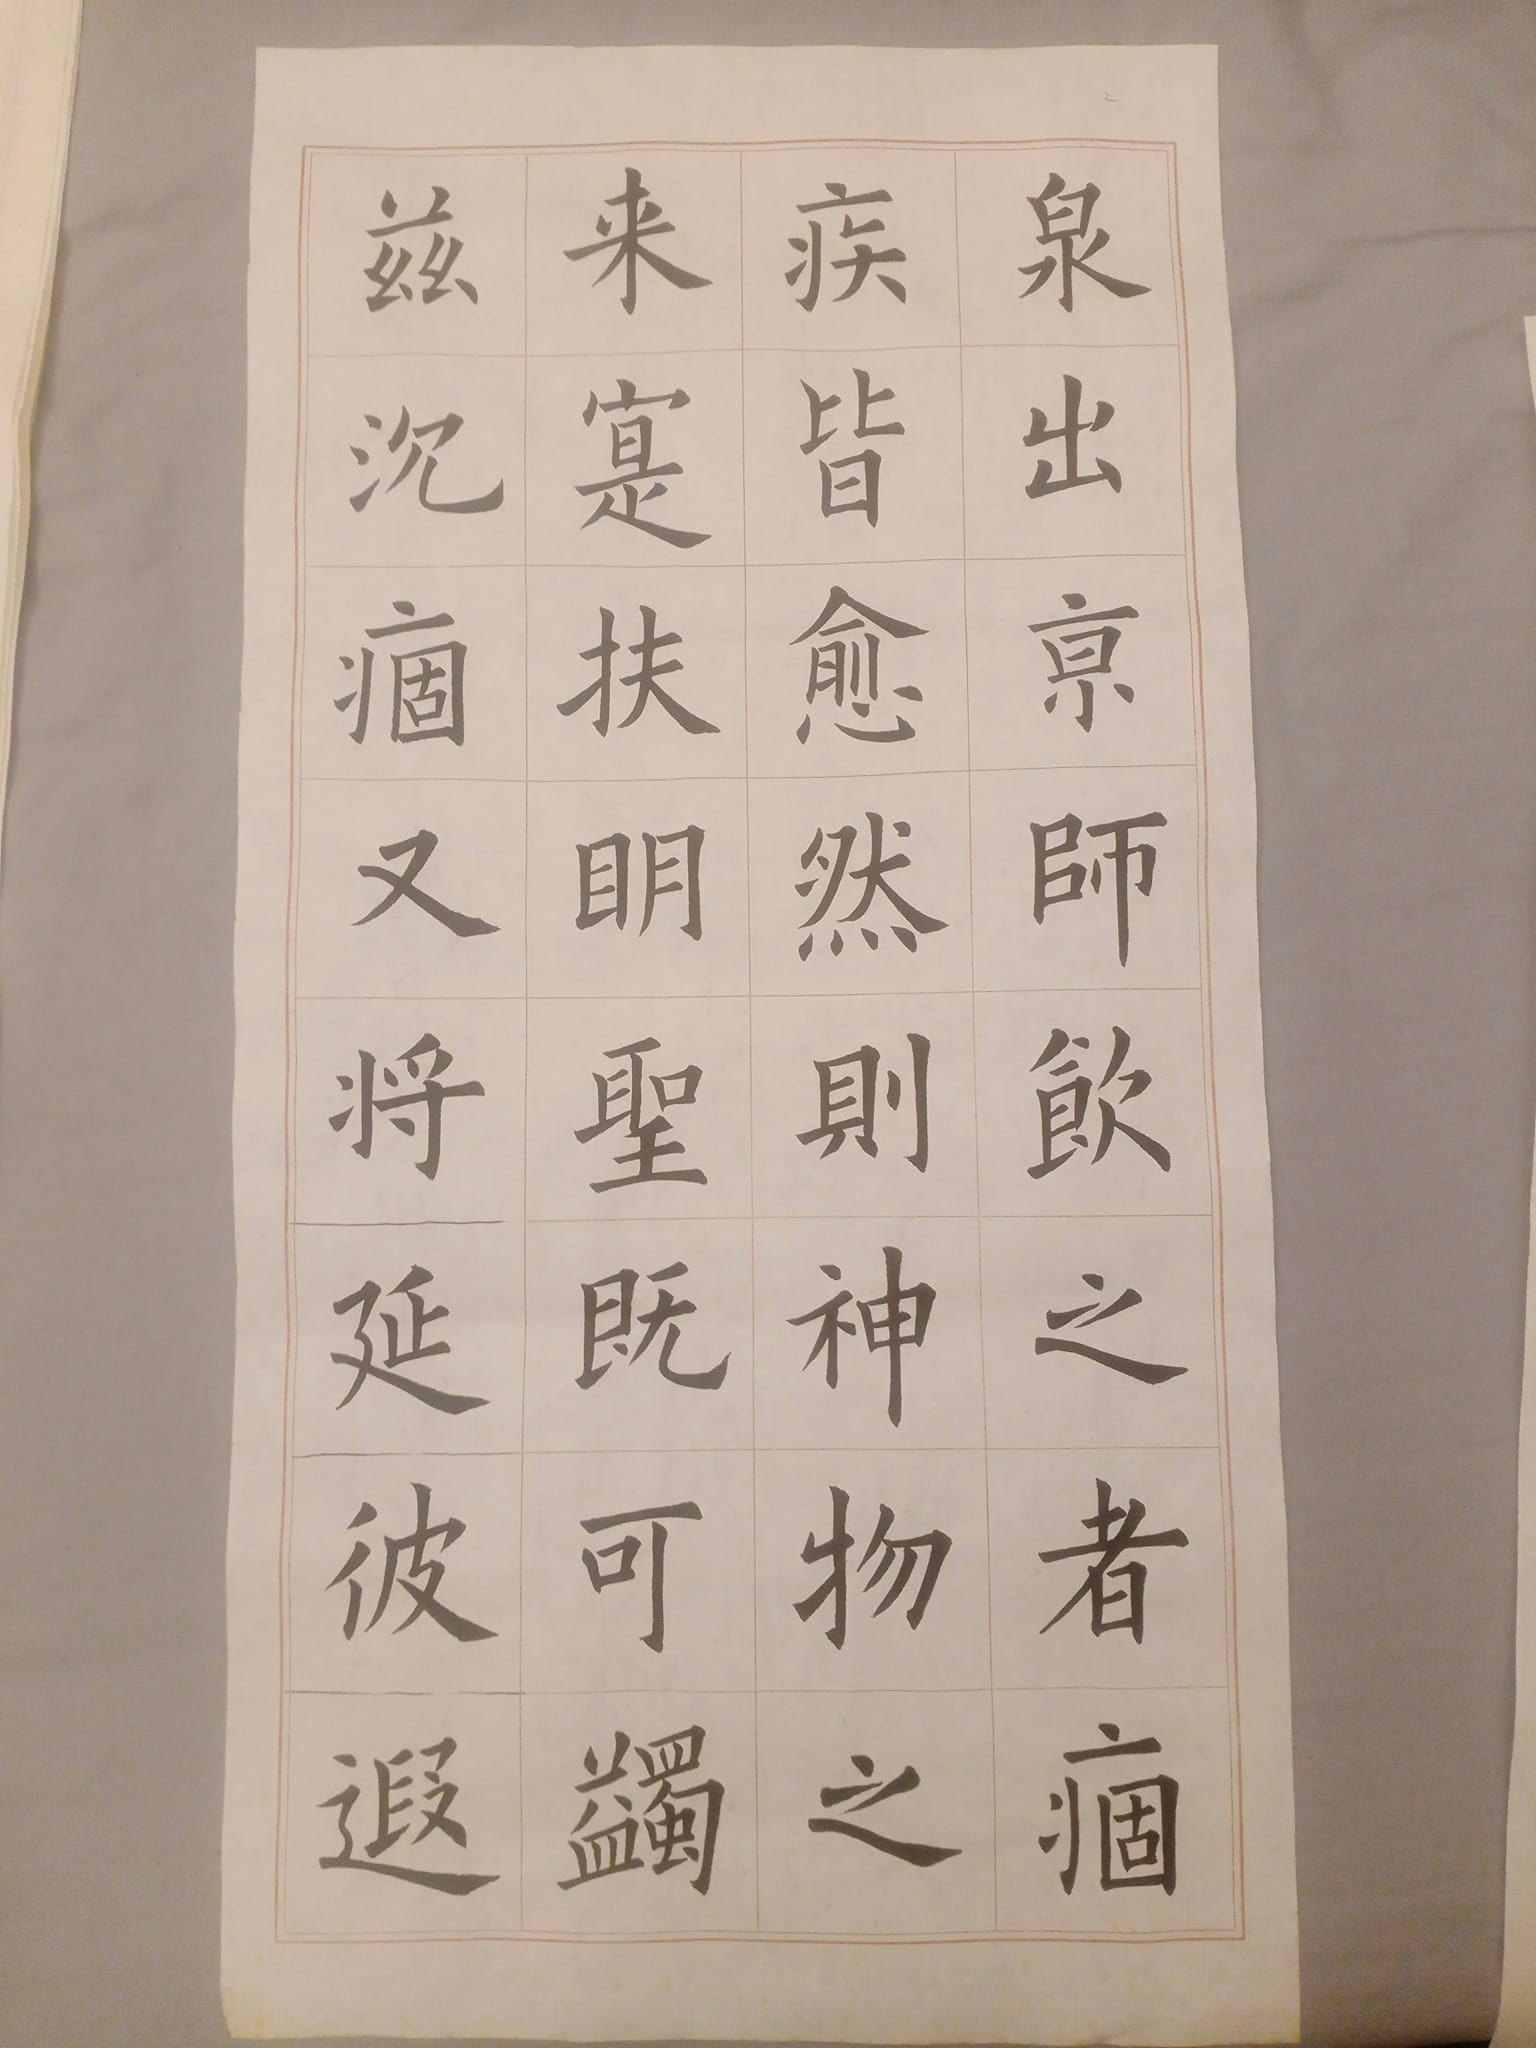 泉出亰師飲之者痼
疾皆愈然則神物之
来寔扶眀聖既可蠲
兹沉痼又将延彼遐